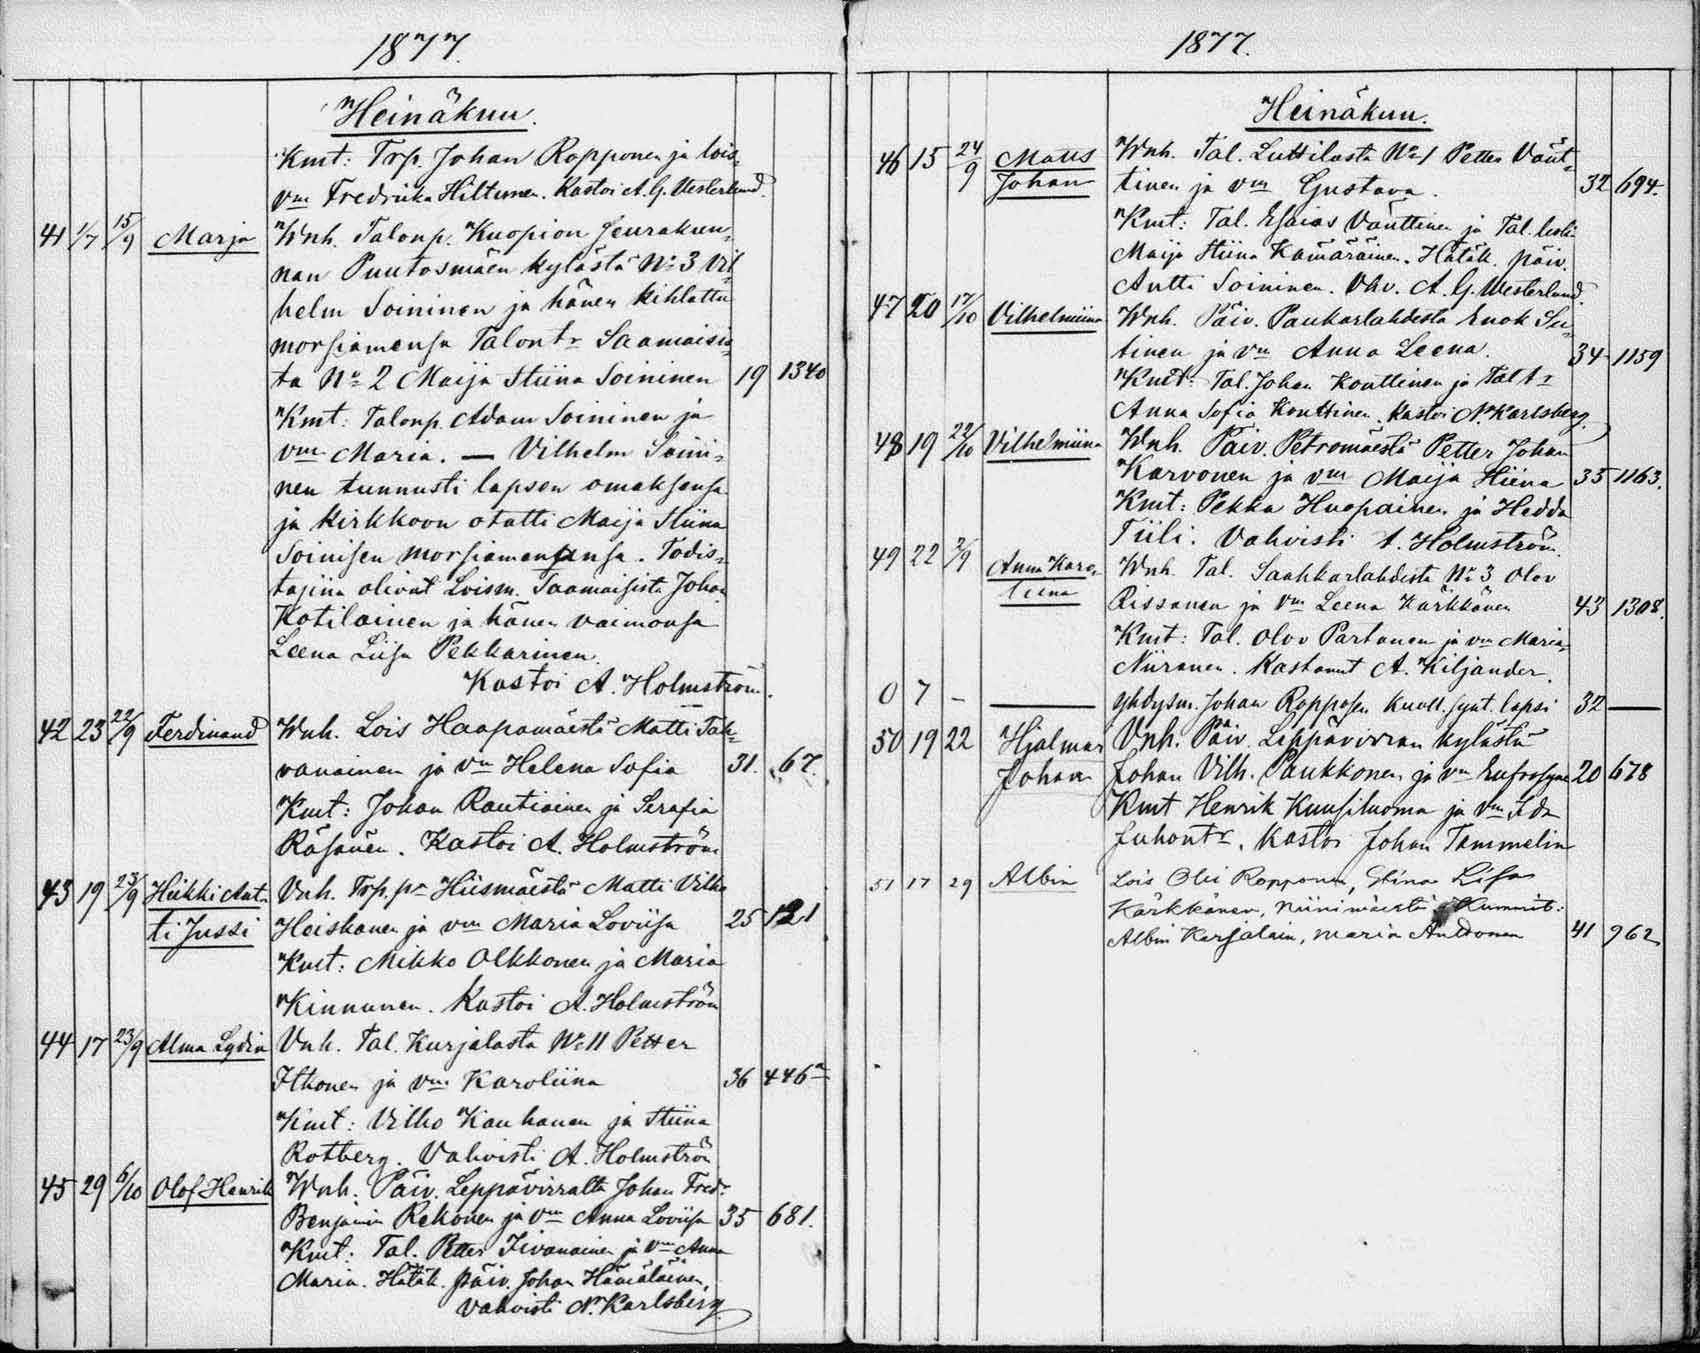 1877.
Heinäkuu.
Kmt: Trp. Johan Ropponen ja lois-
vm Fredrika Hiltunen. Kastoi A. G. Westerlund.
41 1/7 15/9 Marja Wnh. Talonp. Kuopion seurakun-
nan Puutosmäen kylästä No 3 Vil-
helm Soininen ja hänen kihlattu
morsiamensa Talontr Saamaisis-
ta No 2 Maija Stiina Soininen 19 1340
Kmt: Talonp. Adam Soininen ja
vm Maria. — Vilhelm Soini-
nen tunnusti lapsen omaksensa
ja kirkkoon otatti Maija Stiina
Soinisen morsiamensansa. Todis-
tajina olivat Loism. Saamaisista Johan
Kotilainen ja hänen vaimonsa
Leena Liisa Pekkarinen.
Kastoi A. Holmström.
42 23 22/9 Ferdinand Wnh. Lois Haapamäestä Matti Tah-
vanainen ja vm Helena Sofia 31. 67.
Kmt: Johan Rautiainen ja Serafia
Räsänen. Kastoi A. Holmström
43 19 23/9 Heikki Ant- Vnh. Trp. pr Hiismäestä Matti Vilho
ti Jussi Hoiskanen ja vm Maria Loviisa 25 121
Kmt: Mikko Olkkonen ja Maria
Kinnunen. Kastoi A. Holmström
44 17 23/9 Alma Lydia Vnh. Tal. Kurjalasta No 11 Petter
Itkonen ja vm Karoliina 36 446
Kmt: Vilho Kauhanen ja Stiina
Rotberg. Vahvisti A. Holmström
45 29 6/10 Olof Henrik Wnh. Päiv. Leppävirralta Johan Fredr
Benjamin Rekonen ja vm Anna Loviisa 35 681.
Kmt: Tal. Petter Iivanainen ja vm Anna
Maria. Hätäk. päiv. Johan Hämäläinen.
Vahvisti N. Karlsberg
1877.
Heinäkuu.
46 15 24/9 Matts Wnh. Tal. Luttilasta No 1 Petter Vänt-
Johan tinen ja vm Gustava. 32 694.
Kmt: Tal. Esaias Vänttinen ja Tal. leski
Maija Stiina Kämäräinen. Hätäk. päiv.
Antti Soininen. Vhv. A. G. Westerlund.
47 20 17/10 Vilhelmiina Wnh. Päiv. Paukarlahdesta Enok Su-
tinen ja vm Anna Leena. 34 1159
Kmt: Tal. Johan Konttinen ja Tal tr
Anna Sofia Konttinen. Kastoi N. Karlsberg.
48 19 22/10 Vilhelmiina Wnh. Päiv. Petromäestä Petter Johan
Karvonen ja vm Maija Stiina 35 1163.
Kmt: Pekka Huopainen ja Hedda
Tiili. Vahvisti A. Holmström.
49 22 2/9 Anna Karo- Wnh. Tal. Saahkarlahdesta No 3 Olov
liina Rissanen ja vm Leena Kärkkänen 43 1308.
Kmt: Tal. Olov Partanen ja vm Maria
Niiranen. Kastanut A. Kiljander.
0 7 — — yhdysm. Johan Ropposen kuoll. synt. lapsi 32 —
50 19 22 Hjalmar Vnh. Päiv. Leppävirran kylästä
Johan Johan Vilh. Paukkonen ja vm Eufrosyne 20 678
Kmt Henrik Kuusiluoma ja vm Ida
Juhontr. Kastoi Johan Tammelin
51 17 29 Albin Lois Olli Ropponen, Stina Lisa
Kärkkänen, Niinimäestä Kummit:
Albin Karjalain, Maria 41 962